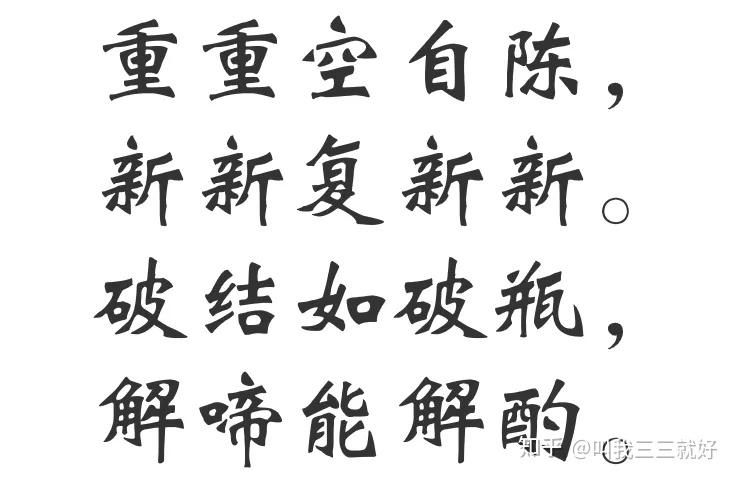 重重空自陈，
新新复新新。
破结如破瓶，
解啼能解酌。
知乎 @叫我三三就好